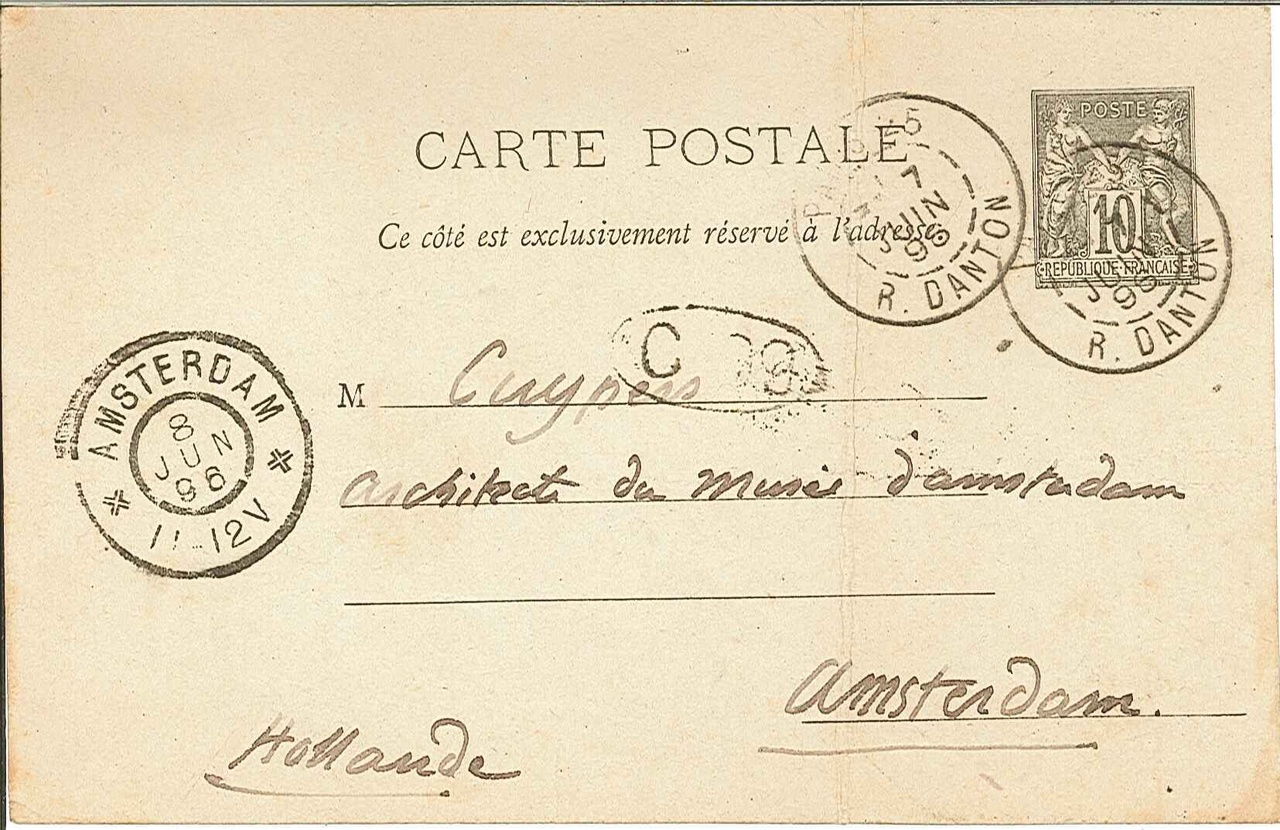 POSTE
10
REPUBLIQUE FRANÇAISE
CARTE POSTALE
Ce côté est exclusivement réservé à l'adresse.
7
JUIN
96
R. DANTON
JUIN
96
R. DANTON
C
M Cuypers
AMSTERDAM
8
JUN
96
11-12V
architecte du Musée d'amsterdam
Amsterdam.
Hollande